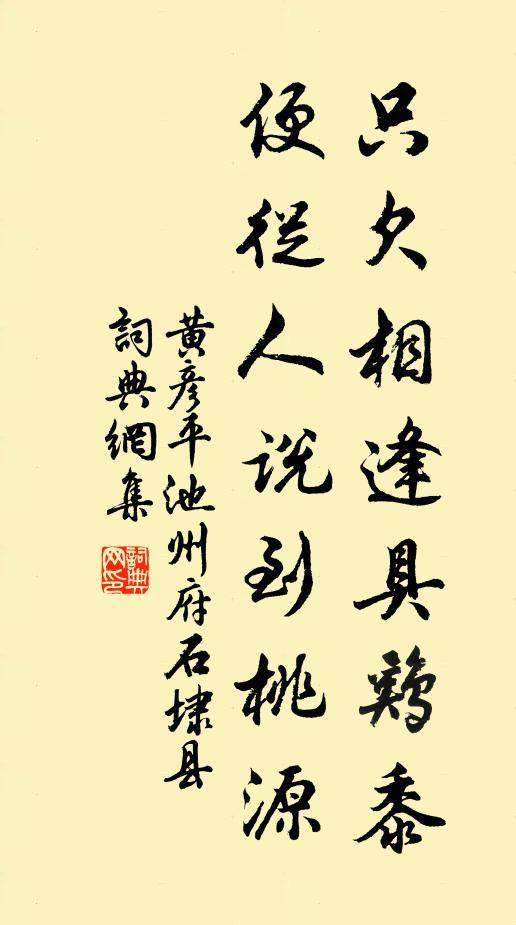 只欠相逢具鷄黍
便從人说到桃源
黄彦平池州府石埭县
詞典網集
詞典网印